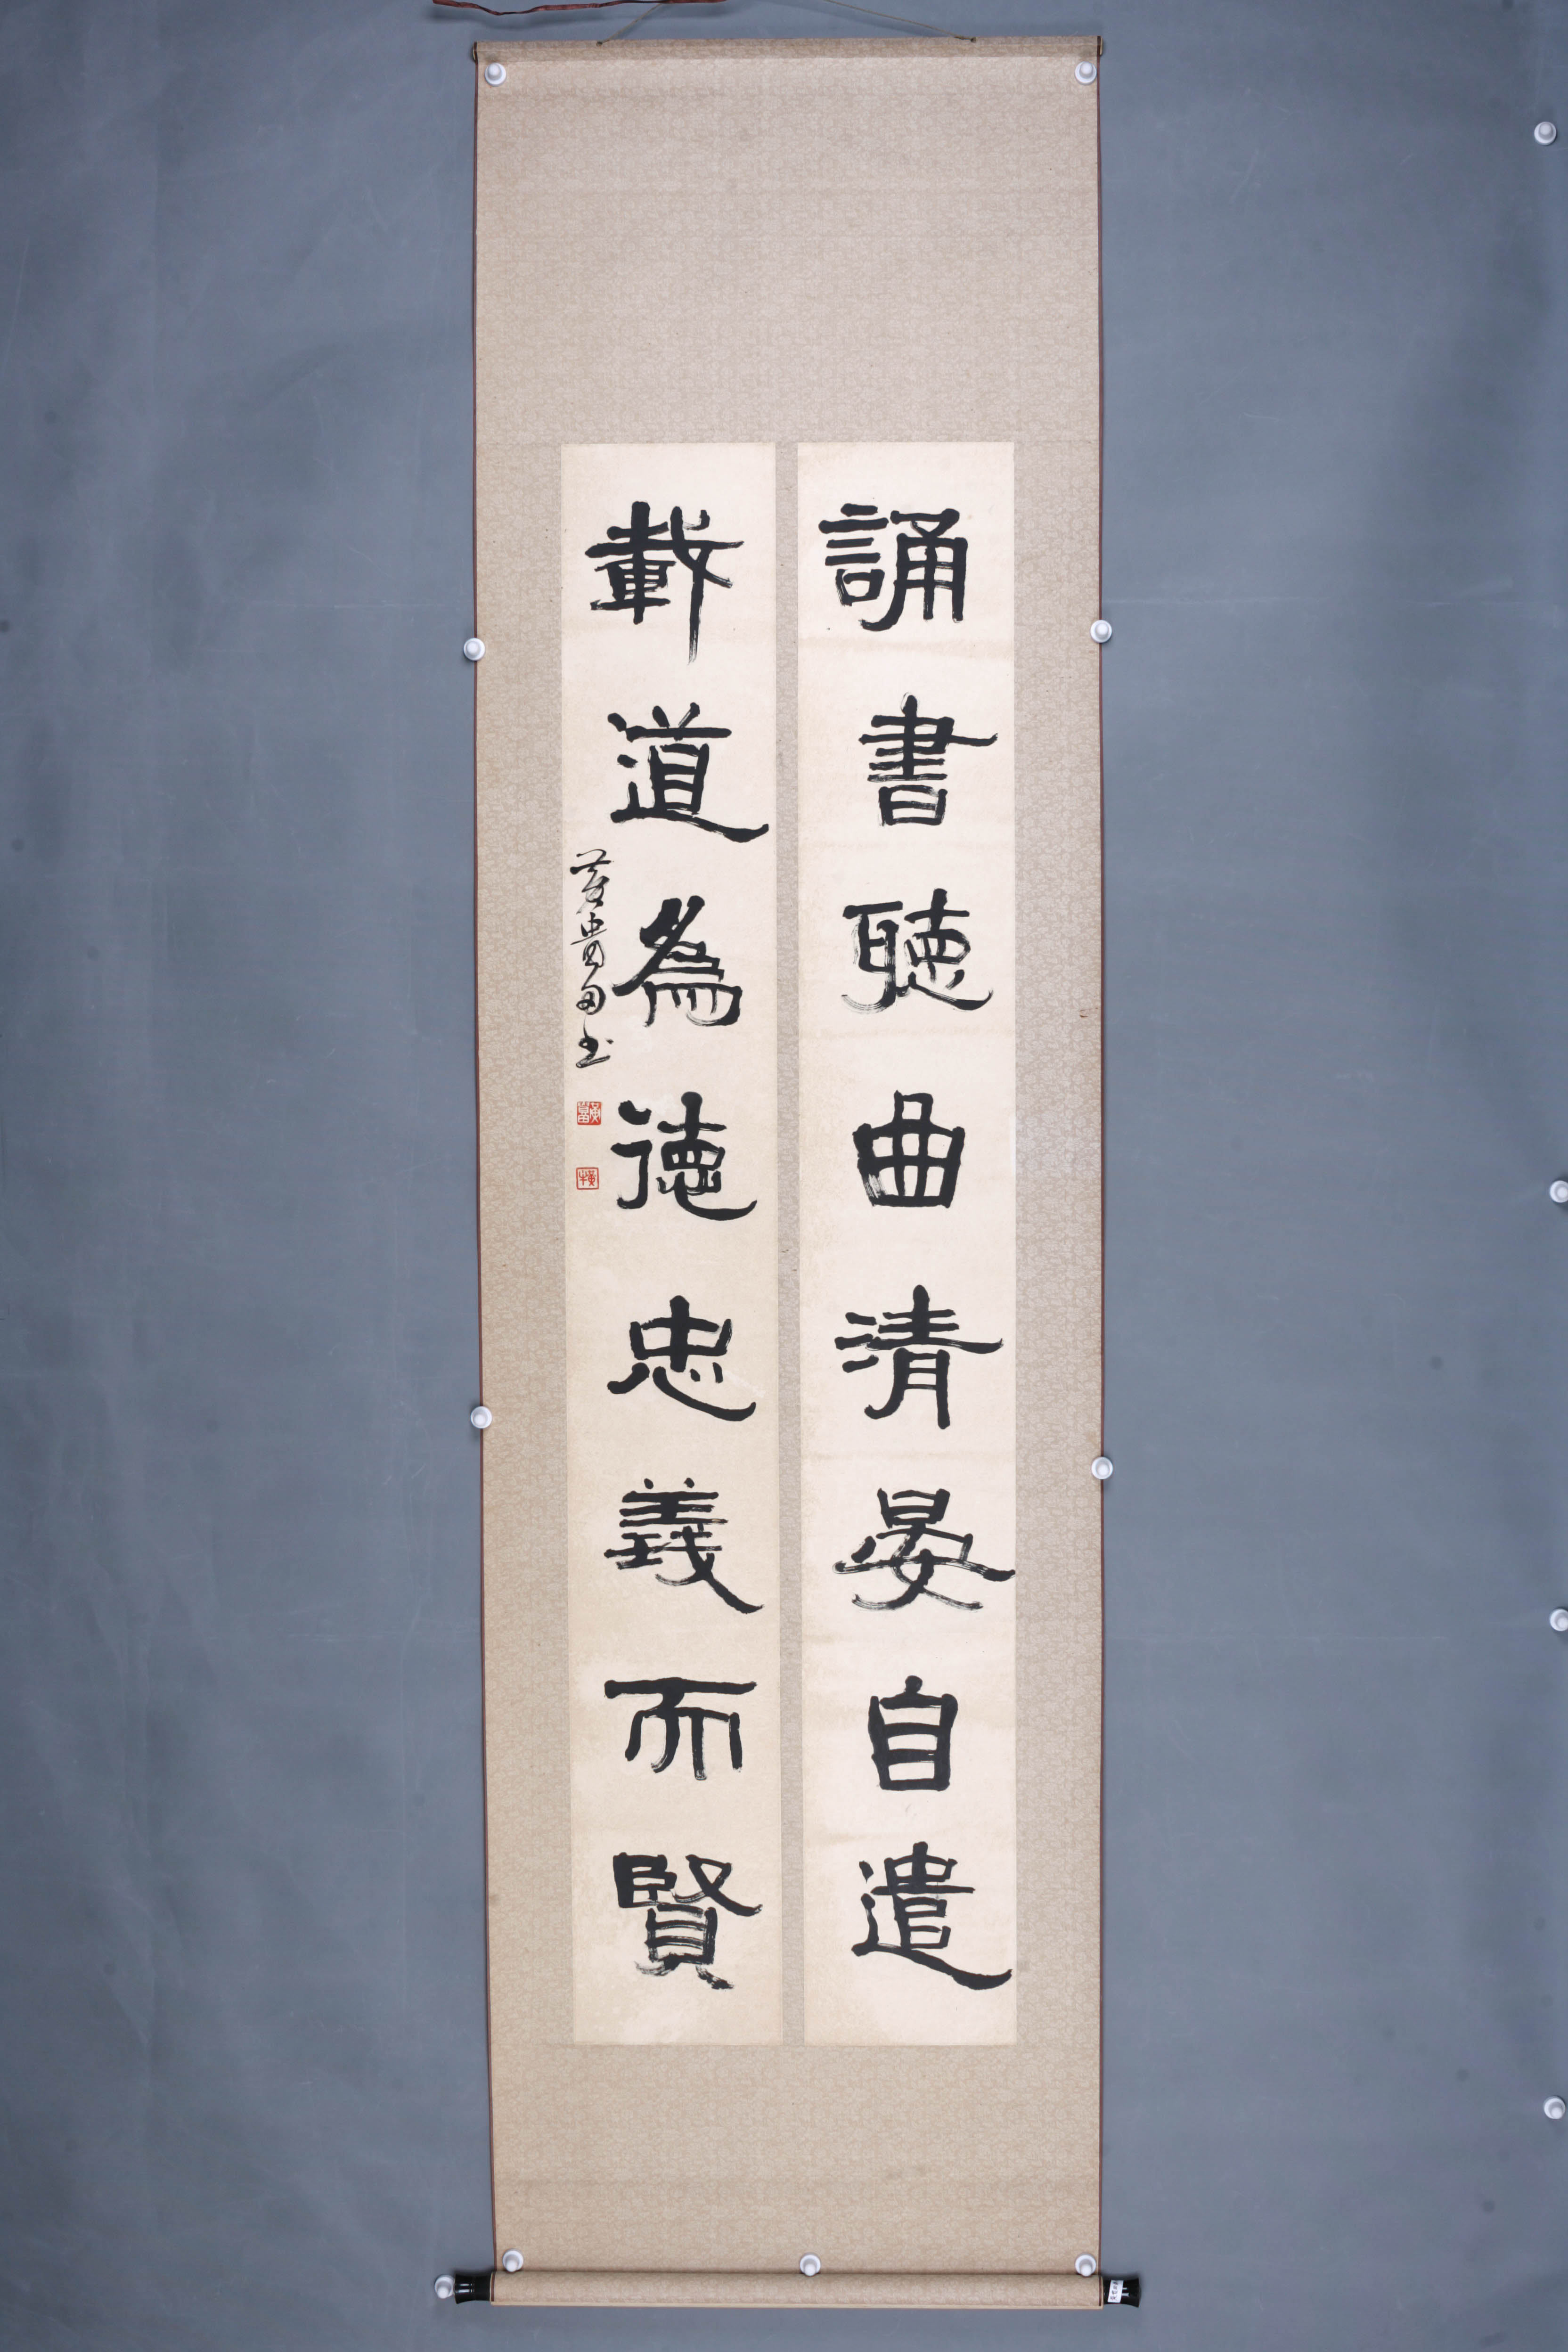 誦書聽曲清晏自遣
載道為德忠義而賢